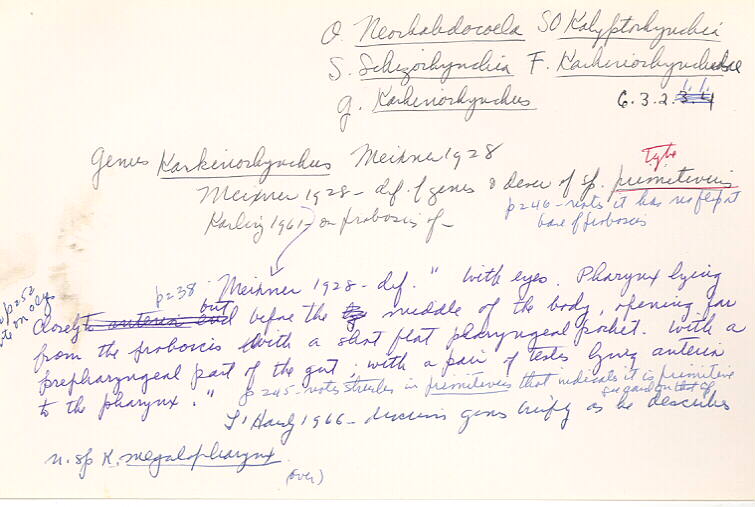 O. Neorhabdocoela SO Kalyptorhynchia
S. Schizorhynchia F. Karkinorhynchidae
g. Karkinorhynchus 6.3.2.
1.1.
Genus Karkinorhynchus Meixner 1928
Type
Meixner 1928 - def. of genus & descr of sp. primitivus
p246 - notes it has no flap at
base of proboscis
Karling 1961 - on proboscis of -
p238 Meixner 1928 - def. " With eyes. Pharynx lying
p252
closely to anterior end but before the middle of the body, opening far
from the proboscis with a short flat pharyngeal pocket. With a
prepharyngeal part of the gut; with a pair of testes lying anterior
to the pharynx." p245 - notes in primitivus that indicate it is primitive
L'Hardy 1966 - discusses genus briefly as he describes
n. sp K. megalopharynx
(over)